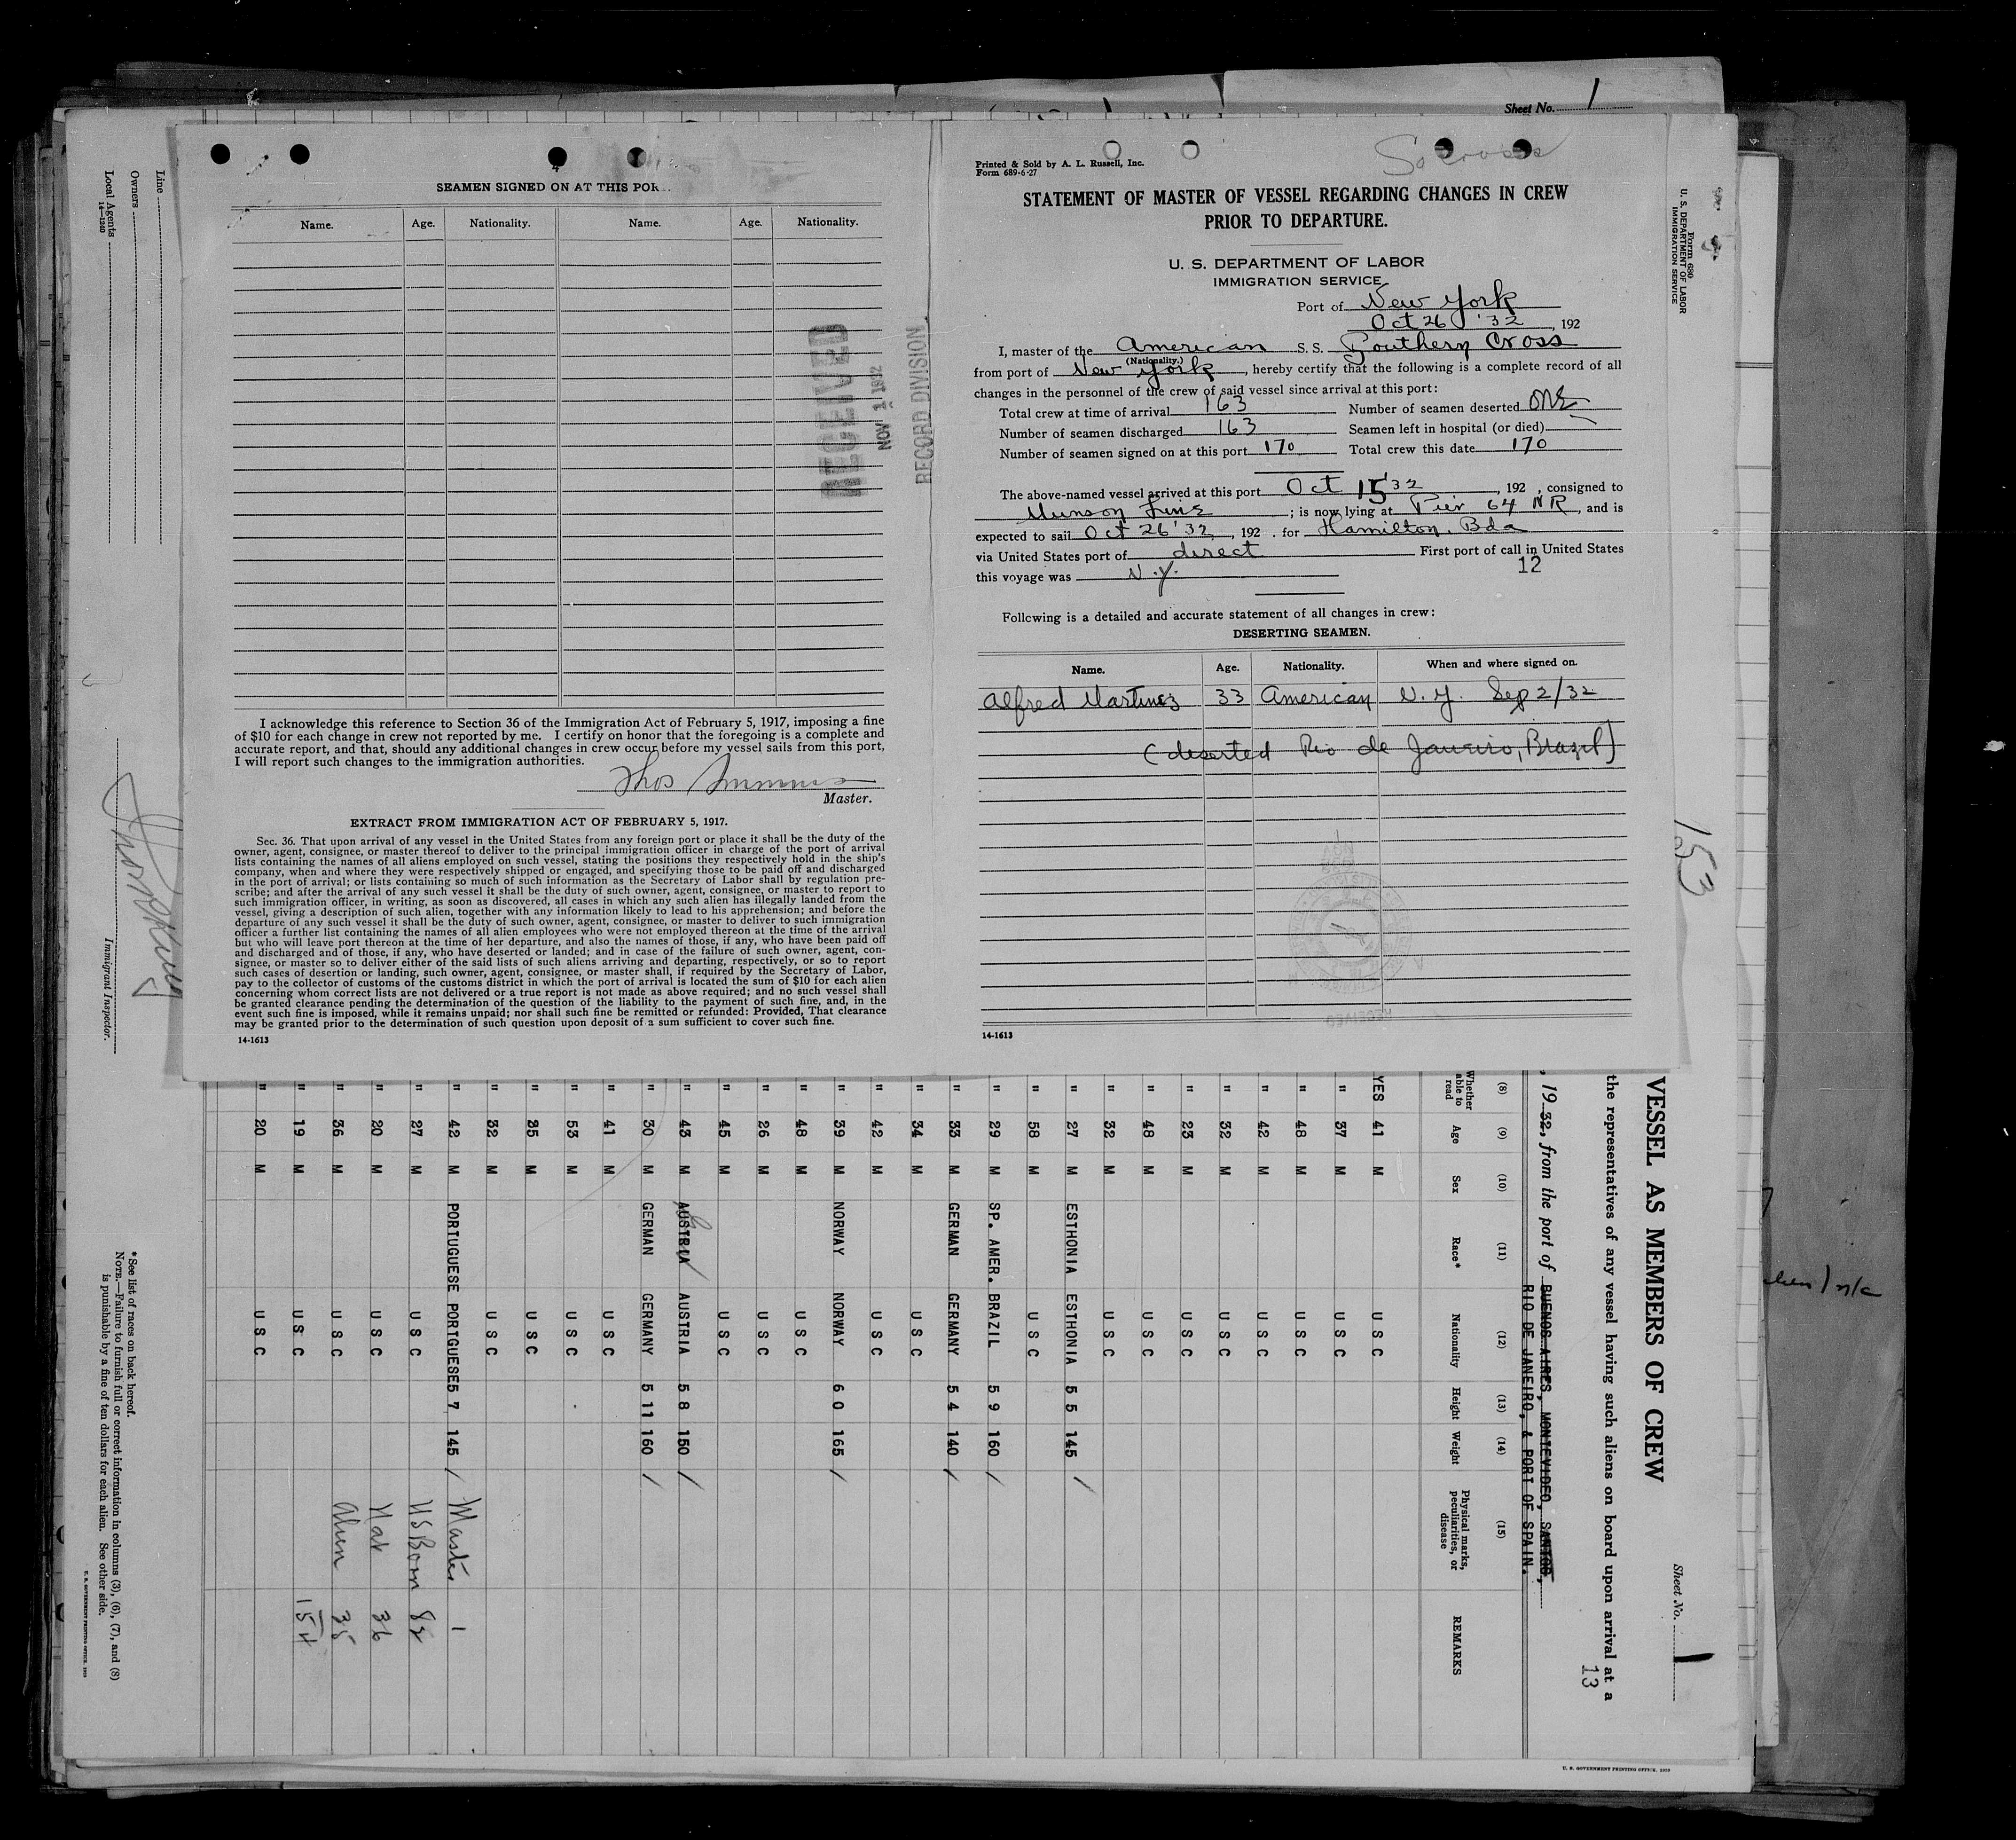 Sheet No. 1
4
SEAMEN SIGNED ON AT THIS POR
Name. Age. Nationality. Name. Age. Nationality.
RECEIVED
NOV 1 1932
RECORD DIVISION
I acknowledge this reference to Section 36 of the Immigration Act of February 5, 1917, imposing a fine
of $10 for each change in crew not reported by me. I certify on honor that the foregoing is a complete and
accurate report, and that, should any additional changes in crew occur before my vessel sails from this port,
I will report such changes to the immigration authorities.
Thos Simmons
Master.
EXTRACT FROM IMMIGRATION ACT OF FEBRUARY 5, 1917.
Sec. 36. That upon arrival of any vessel in the United States from any foreign port or place it shall be the duty of the
owner, agent, consignee, or master thereof to deliver to the principal immigration officer in charge of the port of arrival
lists containing the names of all aliens employed on such vessel, stating the positions they respectively hold in the ship's
company, when and where they were respectively shipped or engaged, and specifying those to be paid off and discharged
in the port of arrival; or lists containing so much of such information as the Secretary of Labor shall by regulation pre-
scribe; and after the arrival of any such vessel it shall be the duty of such owner, agent, consignee, or master to report to
such immigration officer, in writing, as soon as discovered, all cases in which any such alien has illegally landed from the
vessel, giving a description of such alien, together with any information likely to lead to his apprehension; and before the
departure of any such vessel it shall be the duty of such owner, agent, consignee, or master to deliver to such immigration
officer a further list containing the names of all alien employees who were not employed thereon at the time of the arrival
but who will leave port thereon at the time of her departure, and also the names of those, if any, who have been paid off
and discharged and of those, if any, who have deserted or landed; and in case of the failure of such owner, agent, con-
signee, or master so to deliver either of the said lists of such aliens arriving and departing, respectively, or so to report
such cases of desertion or landing, such owner, agent, consignee, or master shall, if required by the Secretary of Labor,
pay to the collector of customs of the customs district in which the port of arrival is located the sum of $10 for each alien
concerning whom correct lists are not delivered or a true report is not made as above required; and no such vessel shall
be granted clearance pending the determination of the question of the liability to the payment of such fine, and, in the
event such fine is imposed, while it remains unpaid; nor shall such fine be remitted or refunded: Provided, That clearance
may be granted prior to the determination of such question upon deposit of a sum sufficient to cover such fine.
14-1613
So Cross
Printed & Sold by A. L. Russell, Inc.
Form 689-6-27
STATEMENT OF MASTER OF VESSEL REGARDING CHANGES IN CREW
PRIOR TO DEPARTURE.
U. S. DEPARTMENT OF LABOR
IMMIGRATION SERVICE
Port of New York
Oct 26 '32, 192
I, master of the American S. S. Southern Cross
(Nationality.)
from port of New York, hereby certify that the following is a complete record of all
changes in the personnel of the crew of said vessel since arrival at this port:
Total crew at time of arrival 163 Number of seamen deserted One
Number of seamen discharged 163 Seamen left in hospital (or died) —
Number of seamen signed on at this port 170 Total crew this date 170
The above-named vessel arrived at this port Oct 15 '32, 192 , consigned to
Munson Line ; is now lying at Pier 64 NR, and is
expected to sail Oct 26 '32, 192 . for Hamilton, Bda
via United States port of direct First port of call in United States
this voyage was N.Y. 12
Following is a detailed and accurate statement of all changes in crew:
DESERTING SEAMEN.
Name. Age. Nationality. When and where signed on.
Alfred Martinez 33 American N.Y. Sep 2/32
(deserted Rio de Janeiro, Brazil)
RECEIVED
14-1613
Form 680
U. S. DEPARTMENT OF LABOR
IMMIGRATION SERVICE
153
VESSEL AS MEMBERS OF CREW
Sheet No. 1
the representatives of any vessel having such aliens on board upon arrival at a
13
, 19 32, from the port of BUENOS AIRES, MONTEVIDEO, SANTOS,
RIO DE JANEIRO, & PORT OF SPAIN.
(8) (9) (10) (11) (12) (13) (14) (15)
Whether able to read Age Sex Race* Nationality Height Weight Physical marks, peculiarities, or disease REMARKS
YES 41 M U S C
" 37 M U S C
" 48 M U S C
" 42 M U S C
" 32 M U S C
" 23 M U S C
" 48 M U S C
" 32 M U S C
" 27 M ESTHONIA ESTHONIA 5 5 145 /
" 58 M U S C
" 29 M SP. AMER. BRAZIL 5 9 160 /
" 33 M GERMAN GERMANY 5 4 140 /
" 34 M U S C
" 42 M U S C
" 39 M NORWAY NORWAY 6 0 165 /
" 48 M U S C
" 26 M U S C
" 45 M U S C
" 43 M AUSTRIA AUSTRIA 5 8 150 /
" 30 M GERMAN GERMANY 5 11 160 /
" 41 M U S C
" 53 M U S C
" 25 M U S C
" 32 M U S C
" 42 M PORTUGUESE PORTGUESE 5 7 145 / Master 1
" 27 M U S C US Born 82
" 20 M U S C Nat 36
" 36 M U S C Alien 35
" 19 M U S C 154
" 20 M U S C
Line
Owners
Local Agents
14—1240
Immigrant Inspector.
*See list of races on back hereof.
NOTE.—Failure to furnish full or correct information in columns (3), (6), (7), and (8)
is punishable by a fine of ten dollars for each alien. See other side.